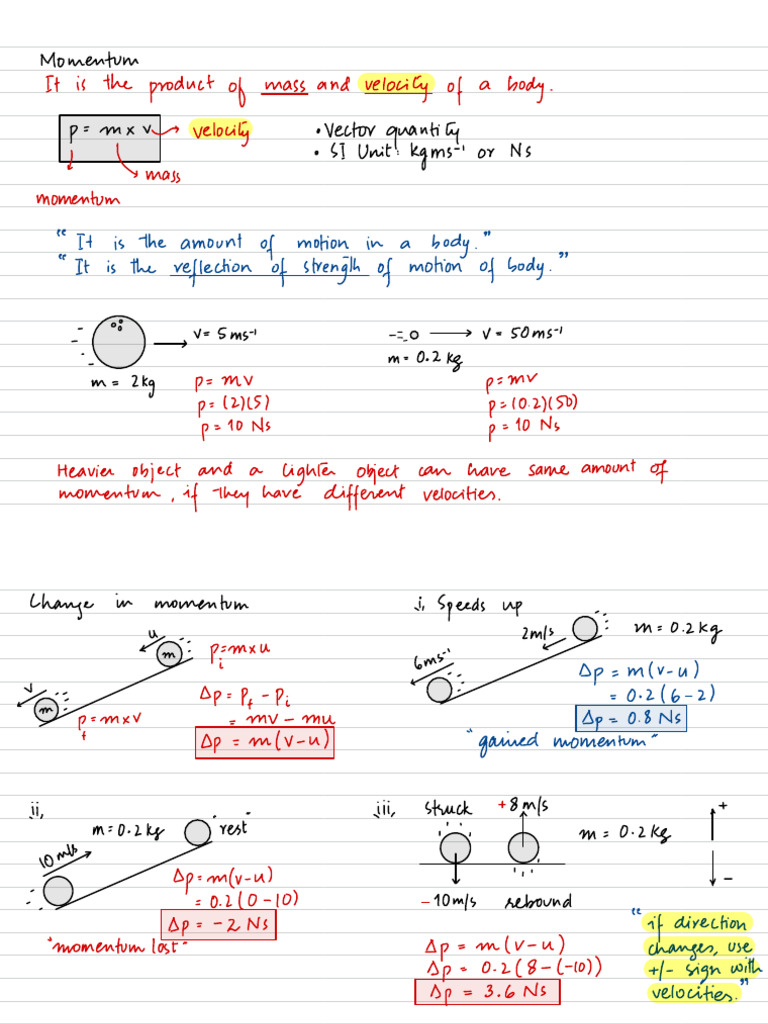 Momentum
It is the product of mass and velocity of a body.
p = m x v → velocity
mass
momentum
• Vector quantity
• SI Unit: kgms⁻¹ or Ns
"It is the amount of motion in a body."
"It is the reflection of strength of motion of body."
v = 5ms⁻¹
m = 2kg
p = mv
p = (2)(5)
p = 10 Ns
v = 50ms⁻¹
m = 0.2kg
p = mv
p = (0.2)(50)
p = 10 Ns
Heavier object and a lighter object can have same amount of
momentum, if they have different velocities.
Change in momentum
u
m
pᵢ = m x u
v
m
p_f = m x v
Δp = p_f - pᵢ
= mv - mu
Δp = m(v-u)
i, Speeds up
2m/s
m = 0.2kg
6ms⁻¹
Δp = m(v-u)
= 0.2(6-2)
Δp = 0.8 Ns
"gained momentum"
ii,
m = 0.2kg
"rest"
10m/s
Δp = m(v-u)
= 0.2(0-10)
Δp = -2 Ns
"momentum lost"
iii,
struck
+8m/s
m = 0.2kg
+
-
-10m/s
rebound
Δp = m(v-u)
Δp = 0.2(8-(-10))
Δp = 3.6 Ns
"if direction
changes, use
+/- sign with
velocities."